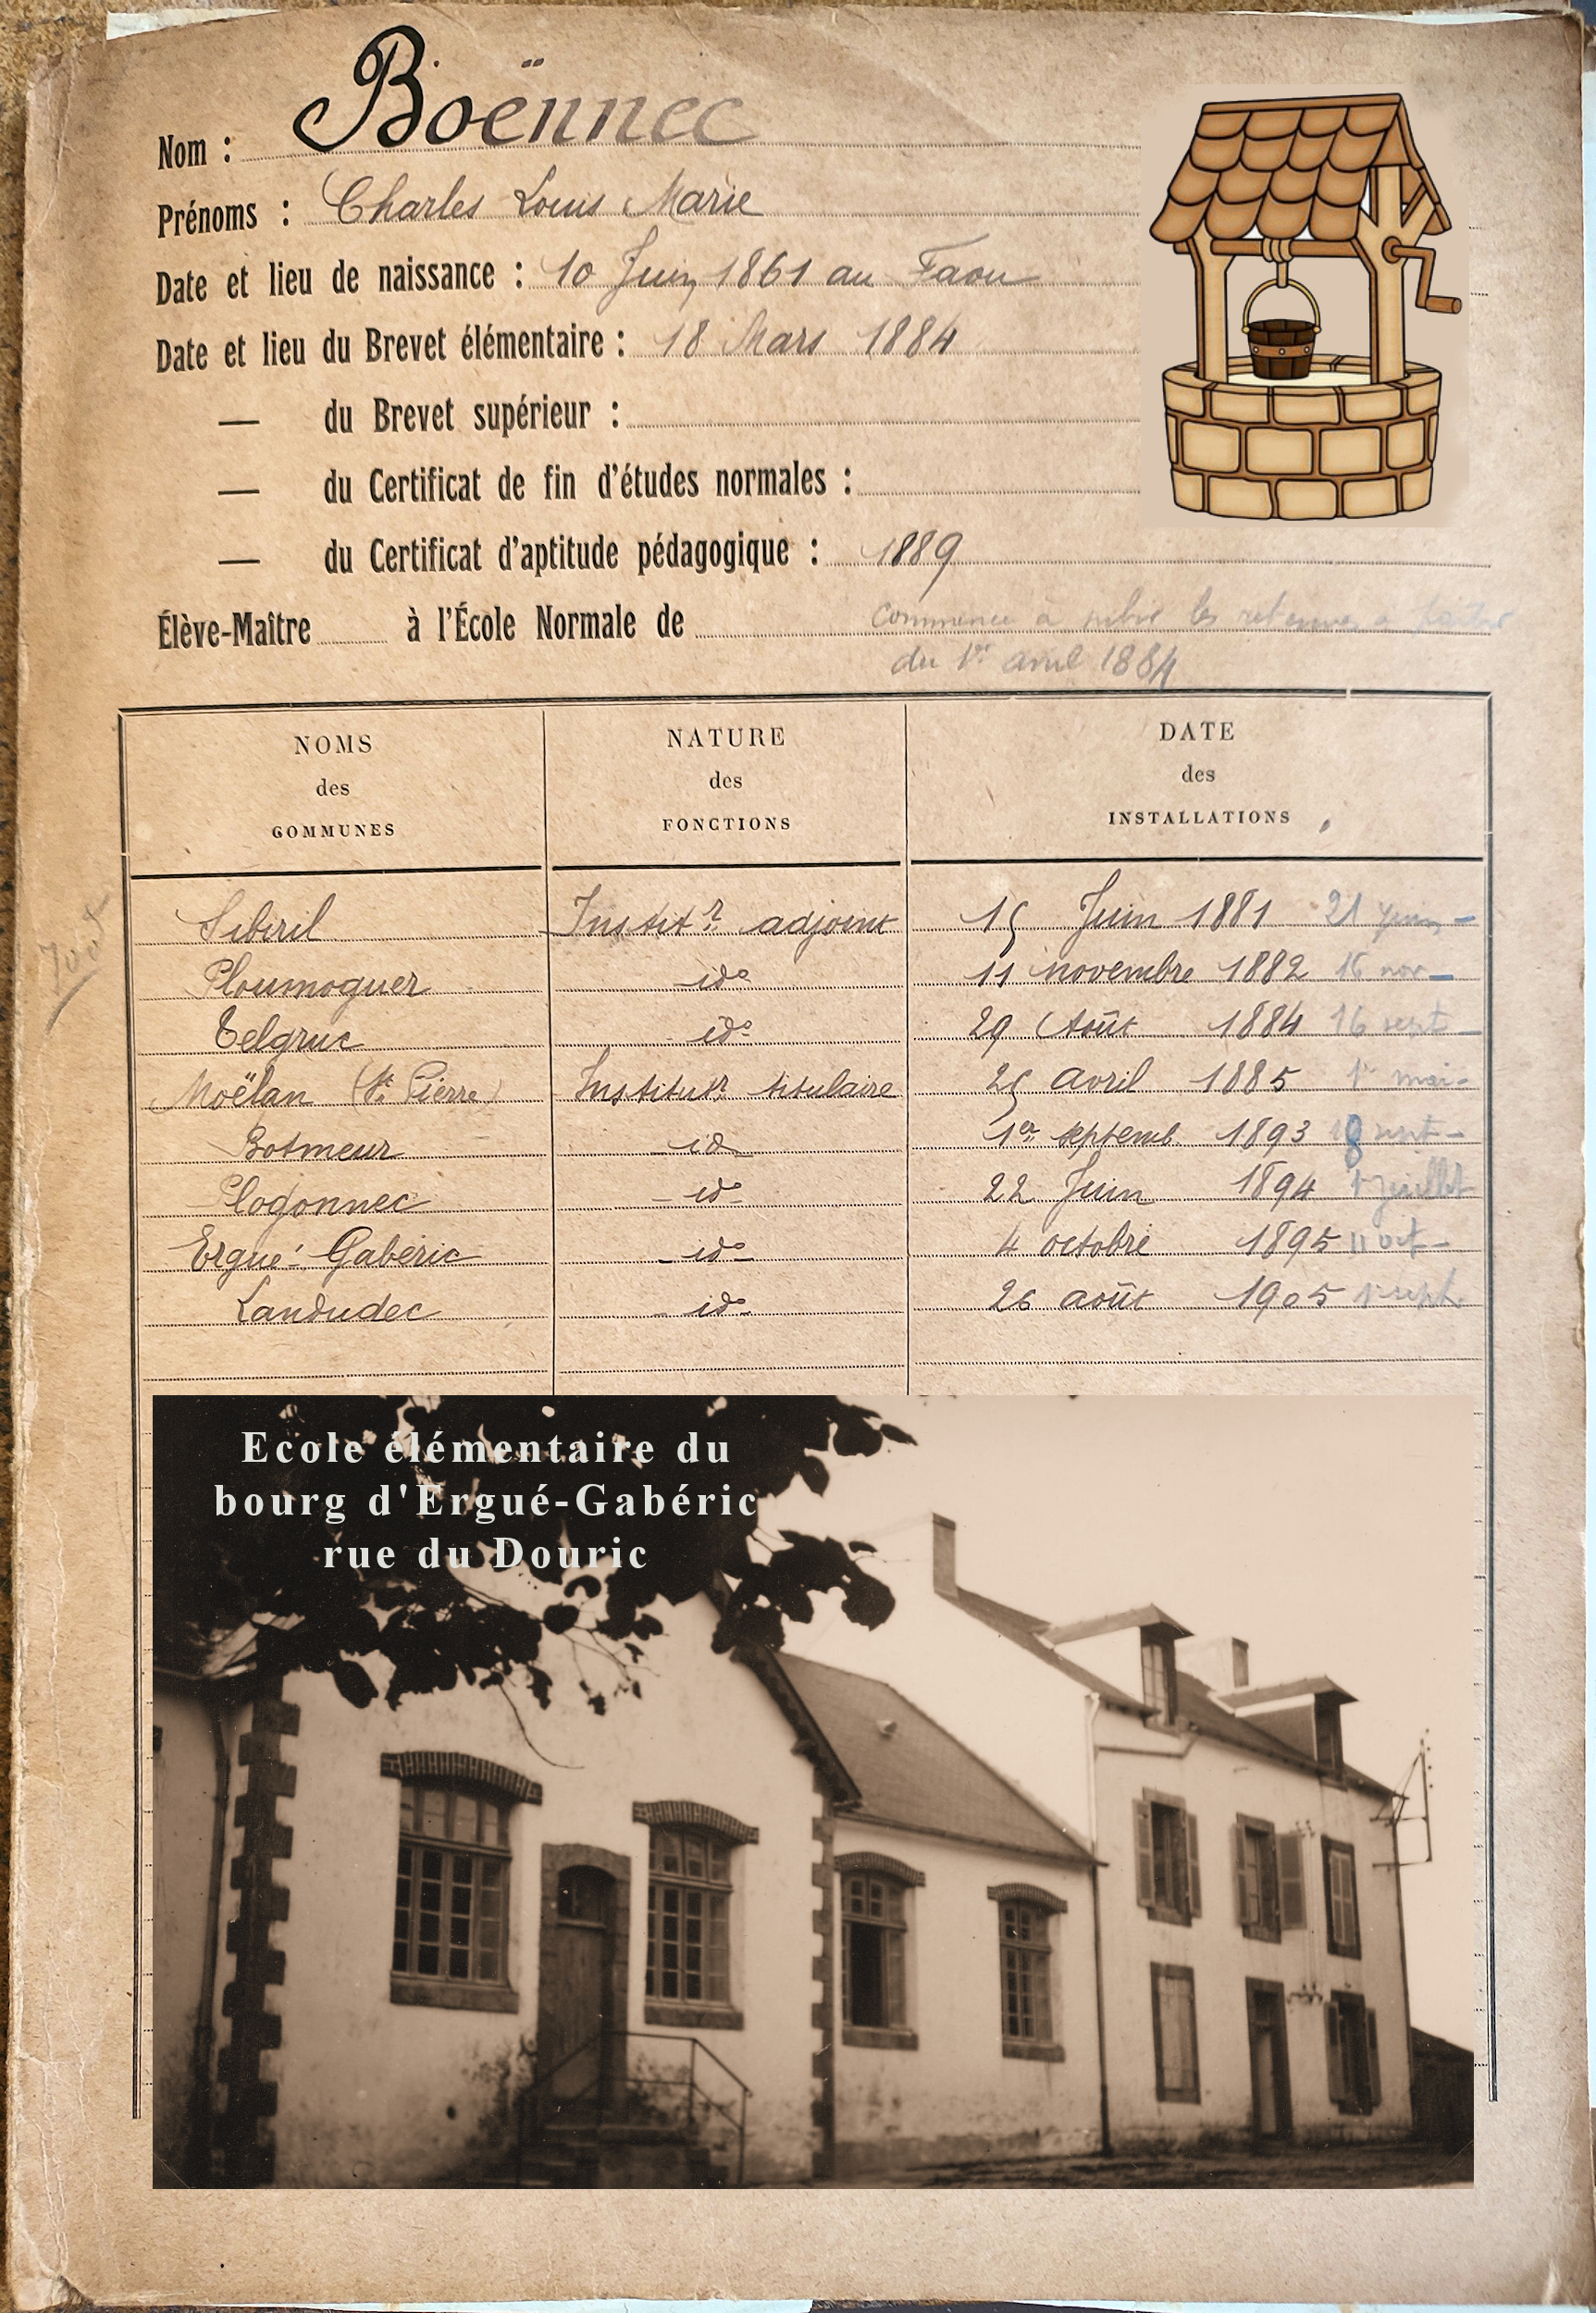 Nom : Boënnec
Prénoms : Charles Louis Marie
Date et lieu de naissance : 10 Juin 1861 au Faou
Date et lieu du Brevet élémentaire : 18 Mars 1884
— du Brevet supérieur :
— du Certificat de fin d'études normales :
— du Certificat d'aptitude pédagogique : 1889
Élève-Maître à l'École Normale de
Commence à subir les retenues à
du 1er avril 1884
NOMS des COMMUNES
NATURE des FONCTIONS
DATE des INSTALLATIONS
Sibiril Instit.r adjoint 15 Juin 1881 21 juin
Ploumoguer ido 11 novembre 1882 16 nov
Telgruc ido 29 Août 1884 16 sept
Moëlan (St Pierre) Institutr. titulaire 25 avril 1885 1er mai
Botmeur id 1er septemb. 1893 18 sept
Plogonnec ido 22 Juin 1894 1er juillet
Ergué-Gabéric ido 4 octobre 1895 11 oct
Landudec ido 26 août 1905 1er sept.
Ecole élémentaire du
bourg d'Ergué-Gabéric
rue du Douric